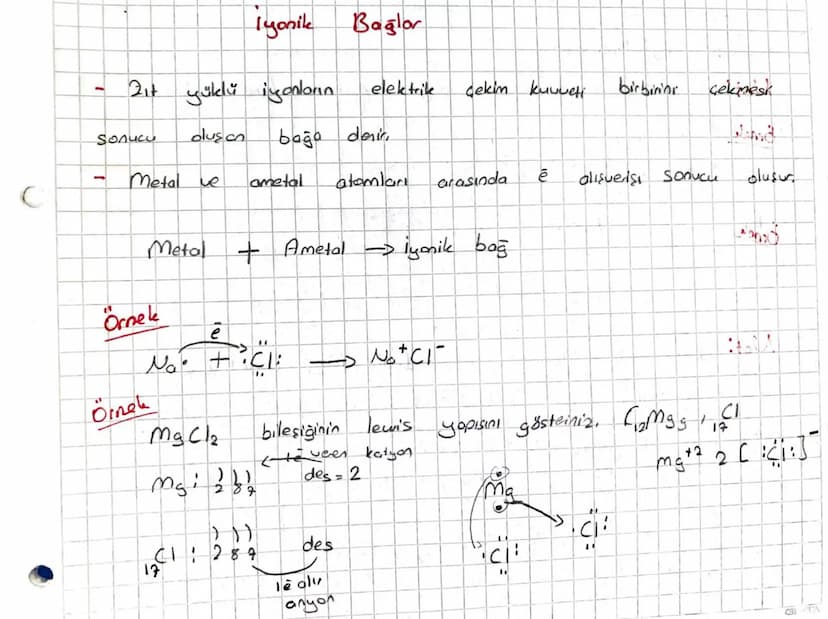 İyonik Bağlar
- Zıt yüklü iyonların elektrik çekim kuvveti birbirini çekmesi
sonucu oluşan bağa denir.
- Metal ve ametal atomları arasında ē alışverişi sonucu oluşur.
Metal + Ametal → İyonik bağ
Örnek
ē
Na• + :Cl: → Na⁺Cl⁻
Örnek
MgCl₂ bileşiğinin lewis yapısını gösteiniz. ₁₂Mg, ₁₇Cl
veren katyon
Mg⁺² 2 [:Cl:]⁻
Mg: 2 8 des = 2
Mg
:Cl:
:Cl:
₁₇Cl: 2 8 7 des
1ē alır
anyon